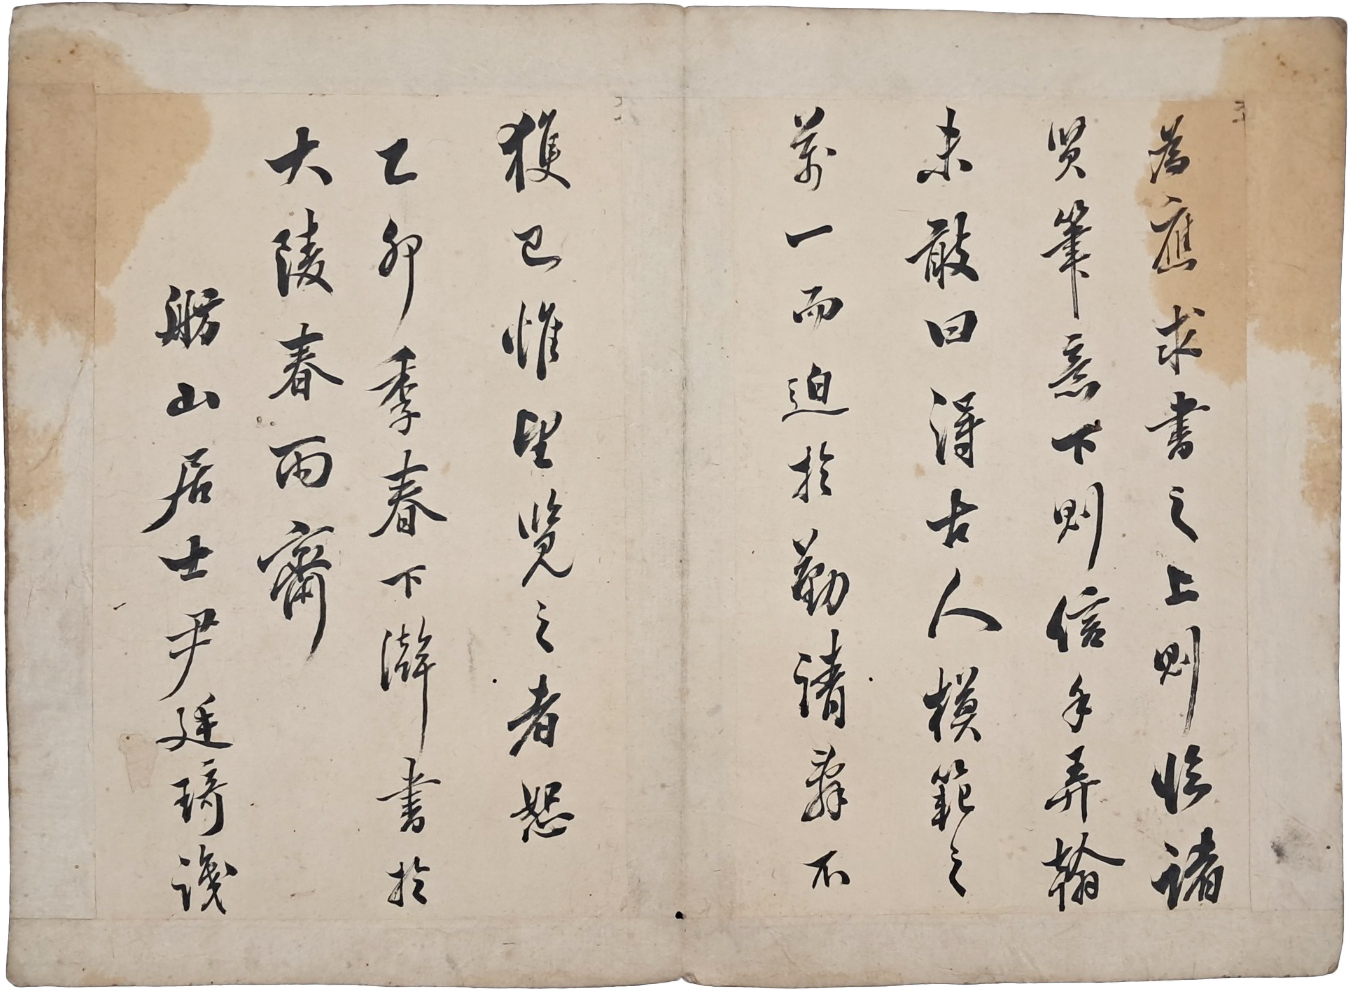 爲應求書之上則臨諸
賢筆意下則信手弄翰
未敢曰得古人模範之
萬一而迫於勤請辭不
獲已惟望覽之者恕
乙卯季春下澣書於
大陵春雨齋
舫山居士尹廷琦識